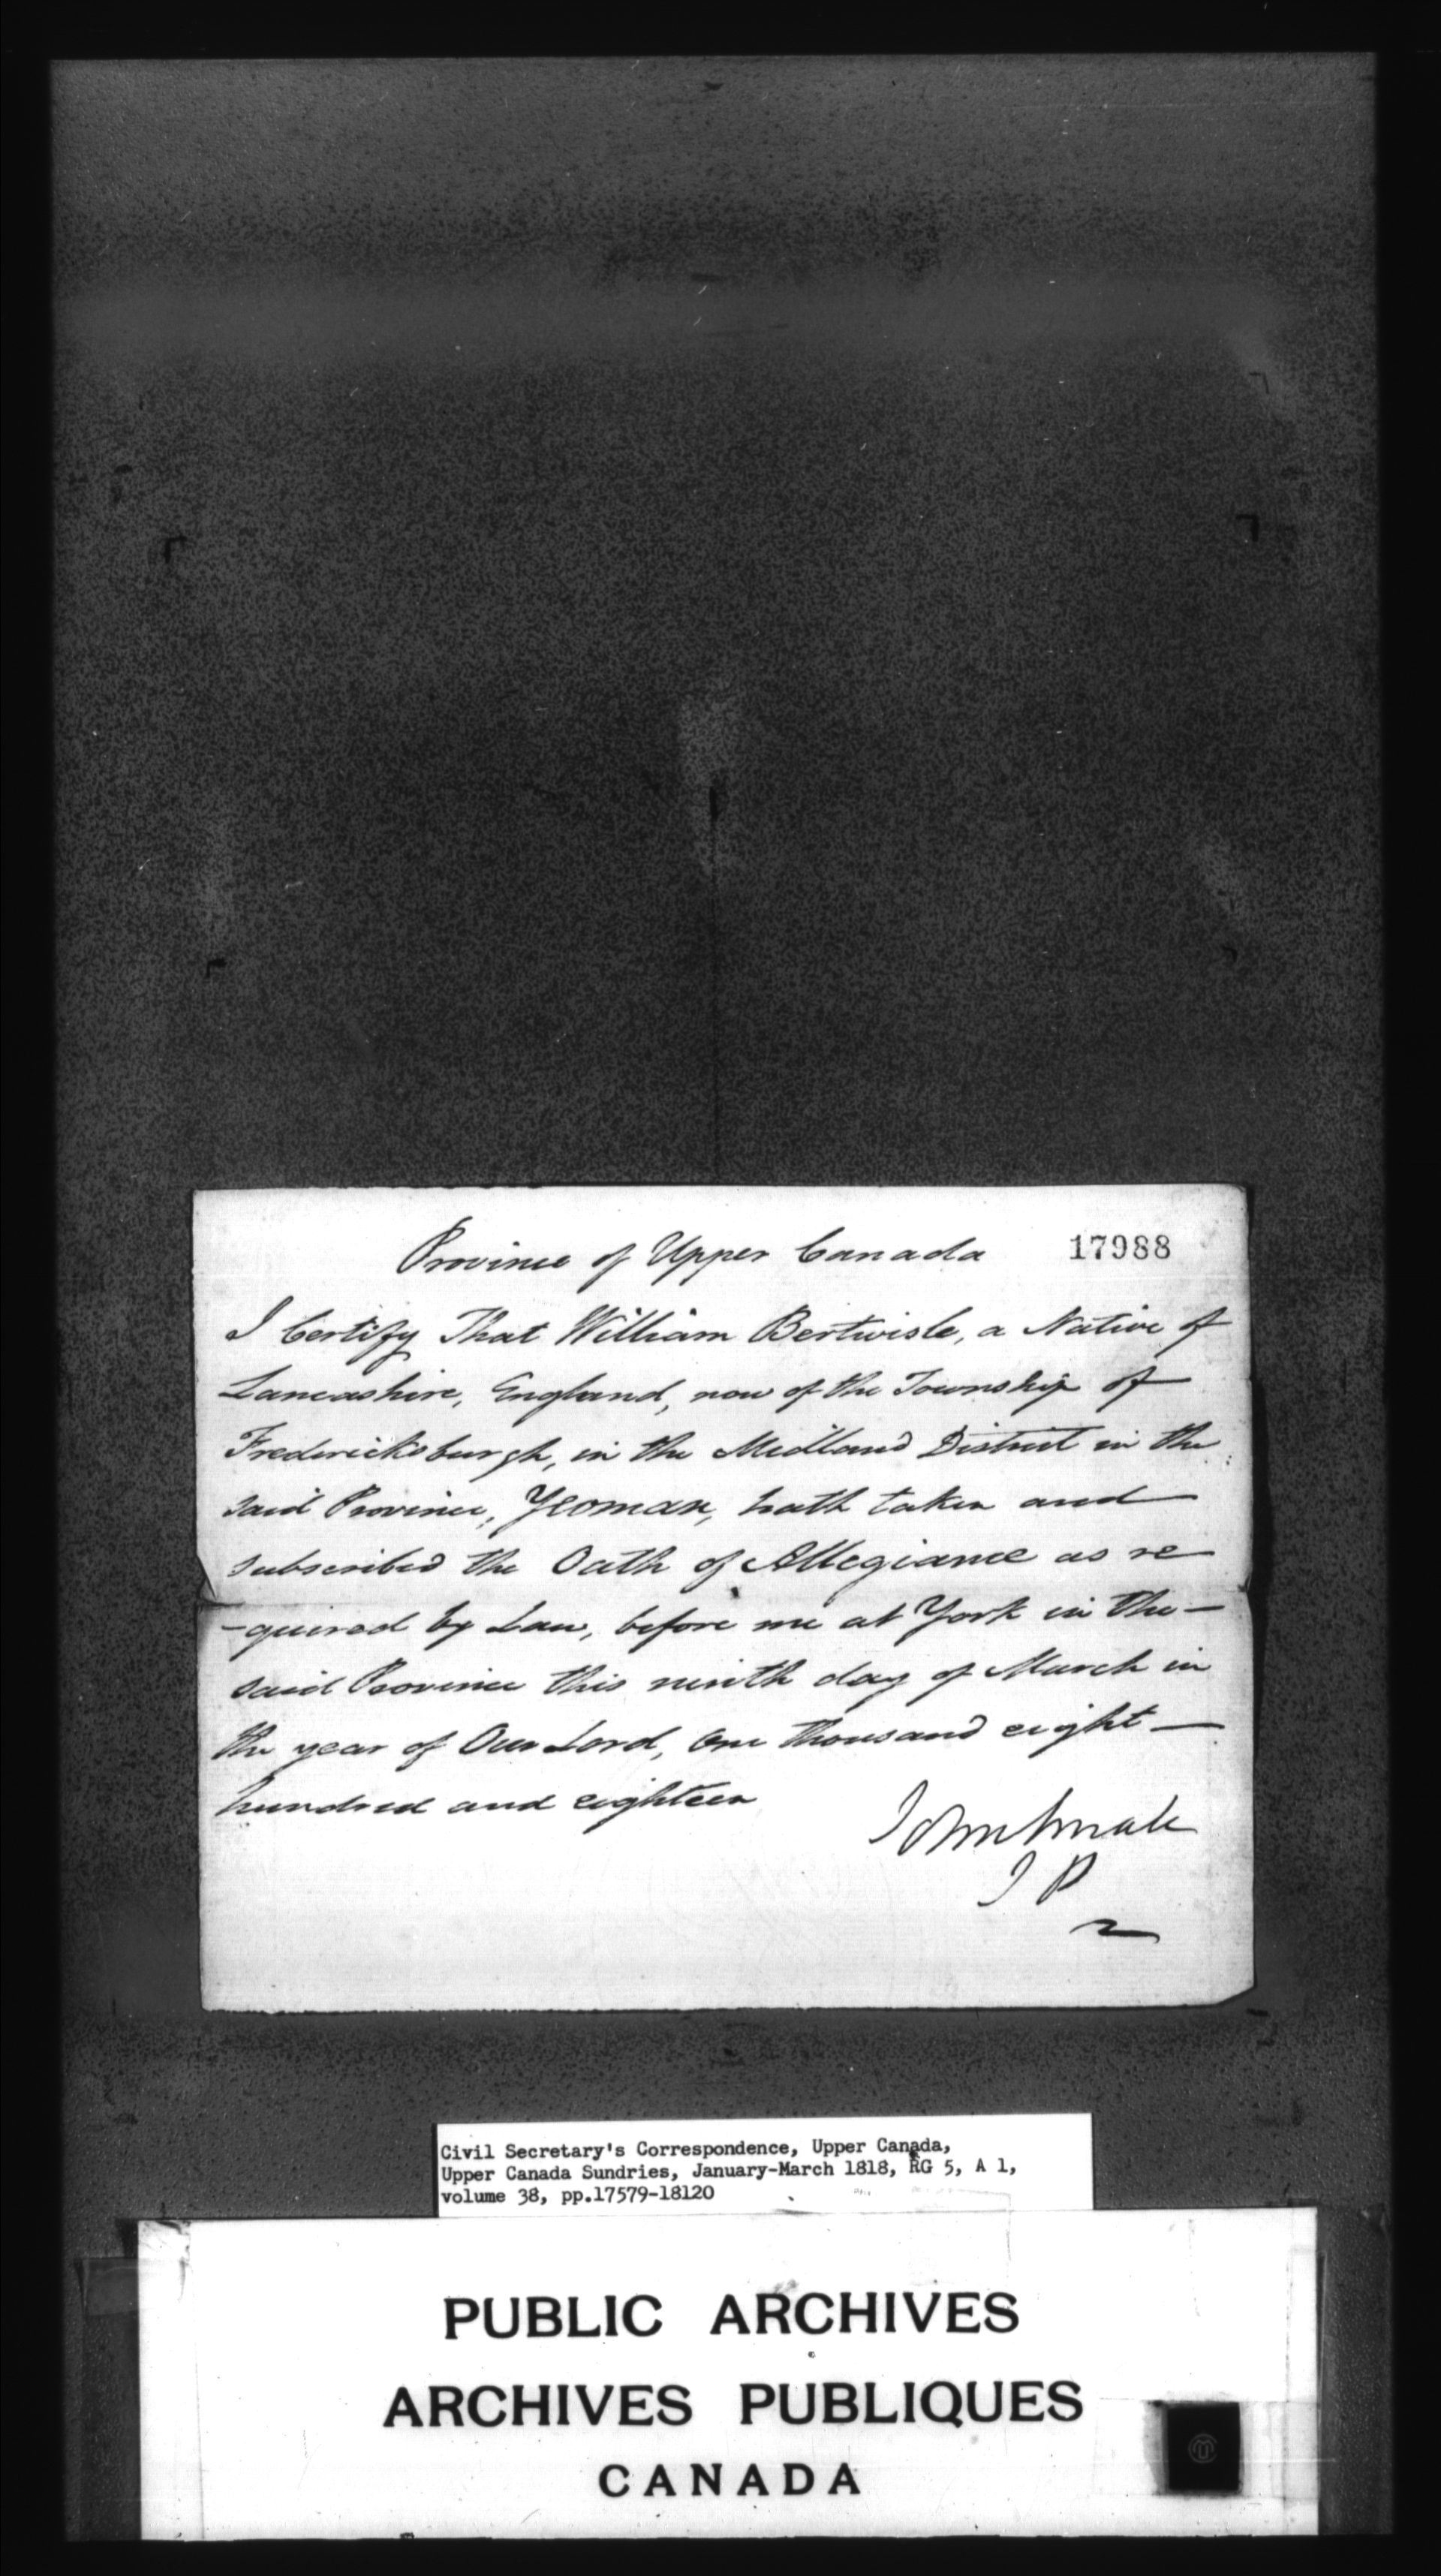 Province of Upper Canada 17988
I Certify That William Bertwisle, a Native of
Lancashire, England, now of the Township of
Fredericksburgh, in the Midland District in the
said Province, Yeoman, hath taken and
subscribed the Oath of Allegiance as re
-quired by Law, before me at York in the
said Province this ninth day of March in
the year of Our Lord, One thousand eight
hundred and eighteen
John Small
J P
Civil Secretary's Correspondence, Upper Canada,
Upper Canada Sundries, January-March 1818, RG 5, A 1,
volume 38, pp.17579-18120
PUBLIC ARCHIVES
ARCHIVES PUBLIQUES
CANADA